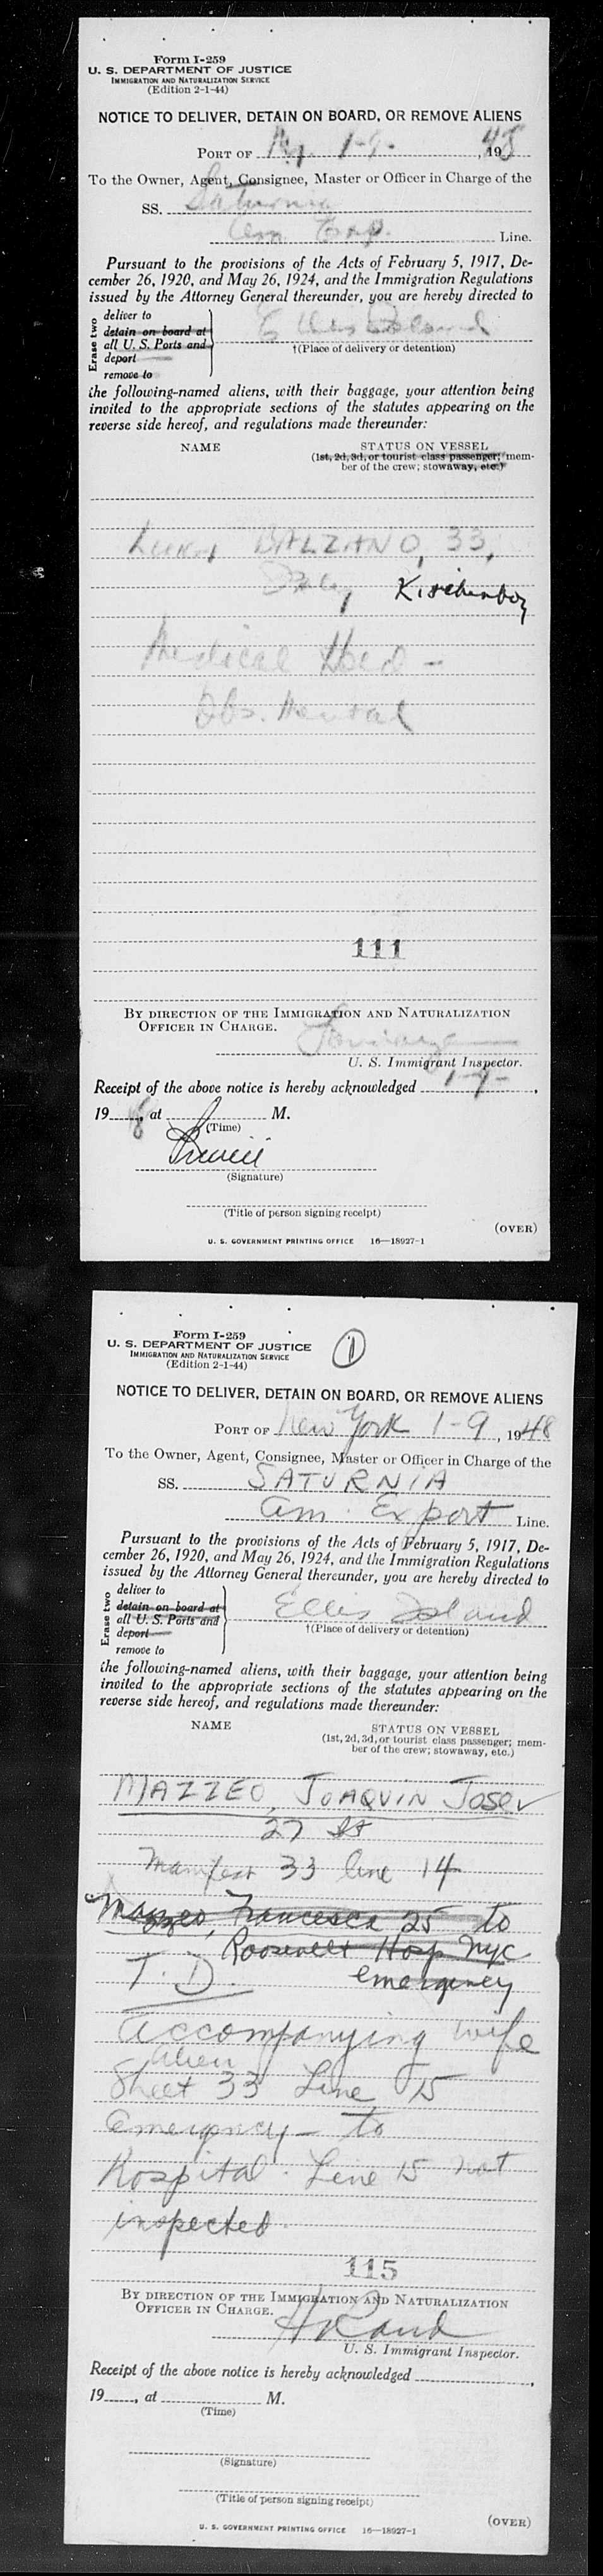 Form I-259
U. S. DEPARTMENT OF JUSTICE
IMMIGRATION AND NATURALIZATION SERVICE
(Edition 2-1-44)
NOTICE TO DELIVER, DETAIN ON BOARD, OR REMOVE ALIENS
PORT OF 1-9- , 1948
To the Owner, Agent, Consignee, Master or Officer in Charge of the
SS. Saturnia
Am Exp. Line.
Pursuant to the provisions of the Acts of February 5, 1917, De-
cember 26, 1920, and May 26, 1924, and the Immigration Regulations
issued by the Attorney General thereunder, you are hereby directed to
Erase two
deliver to
detain on board at
all U. S. Ports and
deport
remove to
Ellis Island
†(Place of delivery or detention)
the following-named aliens, with their baggage, your attention being
invited to the appropriate sections of the statutes appearing on the
reverse side hereof, and regulations made thereunder:
NAME STATUS ON VESSEL
(1st, 2d, 3d, or tourist class passenger; mem-
ber of the crew; stowaway, etc.)
BALZANO, 33,
Medical Hold -
Obs. Mental
111
BY DIRECTION OF THE IMMIGRATION AND NATURALIZATION
OFFICER IN CHARGE.
U. S. Immigrant Inspector.
Receipt of the above notice is hereby acknowledged 1-9- ,
19 8, at M.
(Time)
(Signature)
(Title of person signing receipt)
(OVER)
U. S. GOVERNMENT PRINTING OFFICE 16—18927-1
Form I-259
U. S. DEPARTMENT OF JUSTICE
IMMIGRATION AND NATURALIZATION SERVICE
(Edition 2-1-44)
1
NOTICE TO DELIVER, DETAIN ON BOARD, OR REMOVE ALIENS
PORT OF New York 1-9 , 1948
To the Owner, Agent, Consignee, Master or Officer in Charge of the
SS. SATURNIA
Am. Export Line.
Pursuant to the provisions of the Acts of February 5, 1917, De-
cember 26, 1920, and May 26, 1924, and the Immigration Regulations
issued by the Attorney General thereunder, you are hereby directed to
Erase two
deliver to
detain on board at
all U. S. Ports and
deport
remove to
Ellis Island
†(Place of delivery or detention)
the following-named aliens, with their baggage, your attention being
invited to the appropriate sections of the statutes appearing on the
reverse side hereof, and regulations made thereunder:
NAME STATUS ON VESSEL
(1st, 2d, 3d, or tourist class passenger; mem-
ber of the crew; stowaway, etc.)
MAZZEO, JOAQUIN
27 It
Manifest 33 line 14
Mazzeo, Francesca 25 to
Roosevelt Hosp NYC
T. D. emergency
accompanying wife
alien
Sheet 33 Line 15
Emergency - to
Hospital. Line 15 not
inspected.
115
BY DIRECTION OF THE IMMIGRATION AND NATURALIZATION
OFFICER IN CHARGE.
H Rand
U. S. Immigrant Inspector.
Receipt of the above notice is hereby acknowledged ,
19 , at M.
(Time)
(Signature)
(Title of person signing receipt)
(OVER)
U. S. GOVERNMENT PRINTING OFFICE 16—18927-1